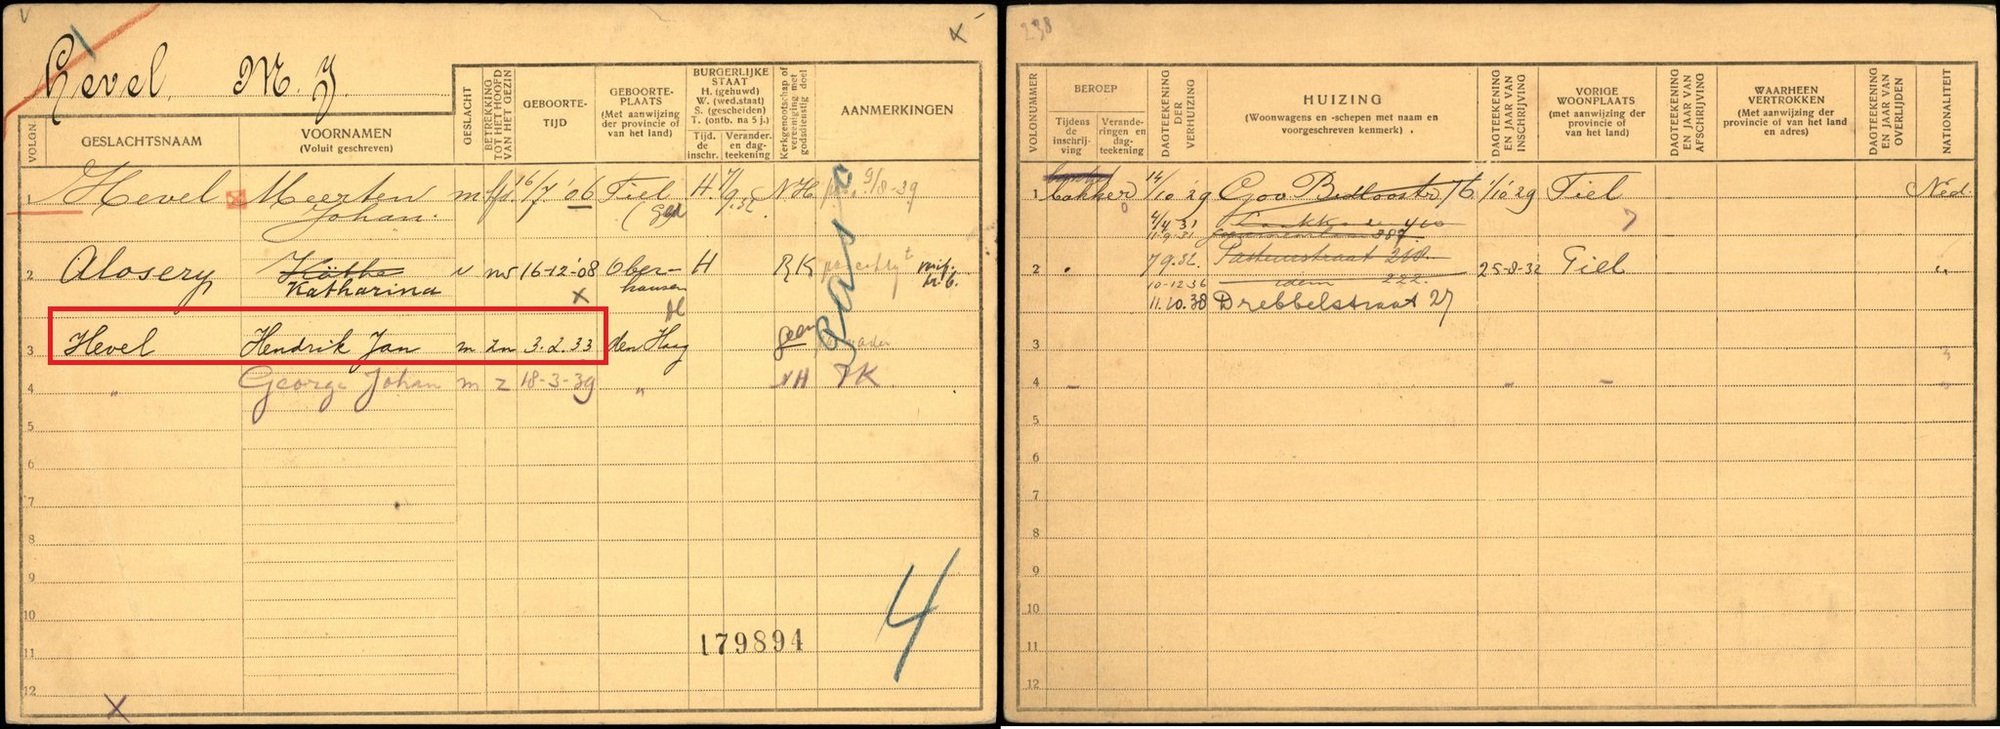 Hevel, M. J.
VOLGN.
GESLACHTSNAAM
VOORNAMEN
(Voluit geschreven)
GESLACHT
BETREKKING TOT HET HOOFD VAN HET GEZIN
GEBOORTE-
TIJD
GEBOORTE-
PLAATS
(Met aanwijzing
der provincie of
van het land)
BURGERLIJKE
STAAT
H. (gehuwd)
W. (wed.staat)
S. (gescheiden)
T. (ontb. na 5 j.)
Tijd.
de
inschr.
Verander.
en dag-
teekening
Kerkgenootschap of vereeniging met godsdienstig doel
AANMERKINGEN
1 Hevel Meerten m hfd. 16/7 '06 Tiel H. 7/9.32. NH 9/8-39
Johan. (Gld)
2 Alosery Käthe v 16-12-'08 Ober- H RK
Katharina hausen
3 Hevel Hendrik Jan m zn 3.2.33 den Haag geen
4 " George Johan m z 18-3-39 " NH PK
5
6
7
8
9
10
11
12
179894
4
238
VOLGNUMMER
BEROEP
Tijdens
de
inschrij-
ving
Verande-
ringen en
dag-
teekening
DAGTEEKENING DER VERHUIZING
HUIZING
(Woonwagens en -schepen met naam en
voorgeschreven kenmerk)
DAGTEEKENING EN JAAR VAN INSCHRIJVING
VORIGE
WOONPLAATS
(met aanwijzing der
provincie of
van het land)
DAGTEEKENING EN JAAR VAN AFSCHRIJVING
WAARHEEN
VERTROKKEN
(Met aanwijzing der
provincie of van het land
en adres)
DAGTEEKENING EN JAAR VAN OVERLIJDEN
NATIONALITEIT
1 bakker 14/10 '29 Gov Bidloostr 76 1/10 '29 Tiel Ned.
4/4 31
11.9.31 387
2 7.9.32. Pasteurstraat 268. 25-8-32 Tiel "
10-12-36 idem 222.
11.10.38 Drebbelstraat 27
3 "
4 – " – "
5
6
7
8
9
10
11
12